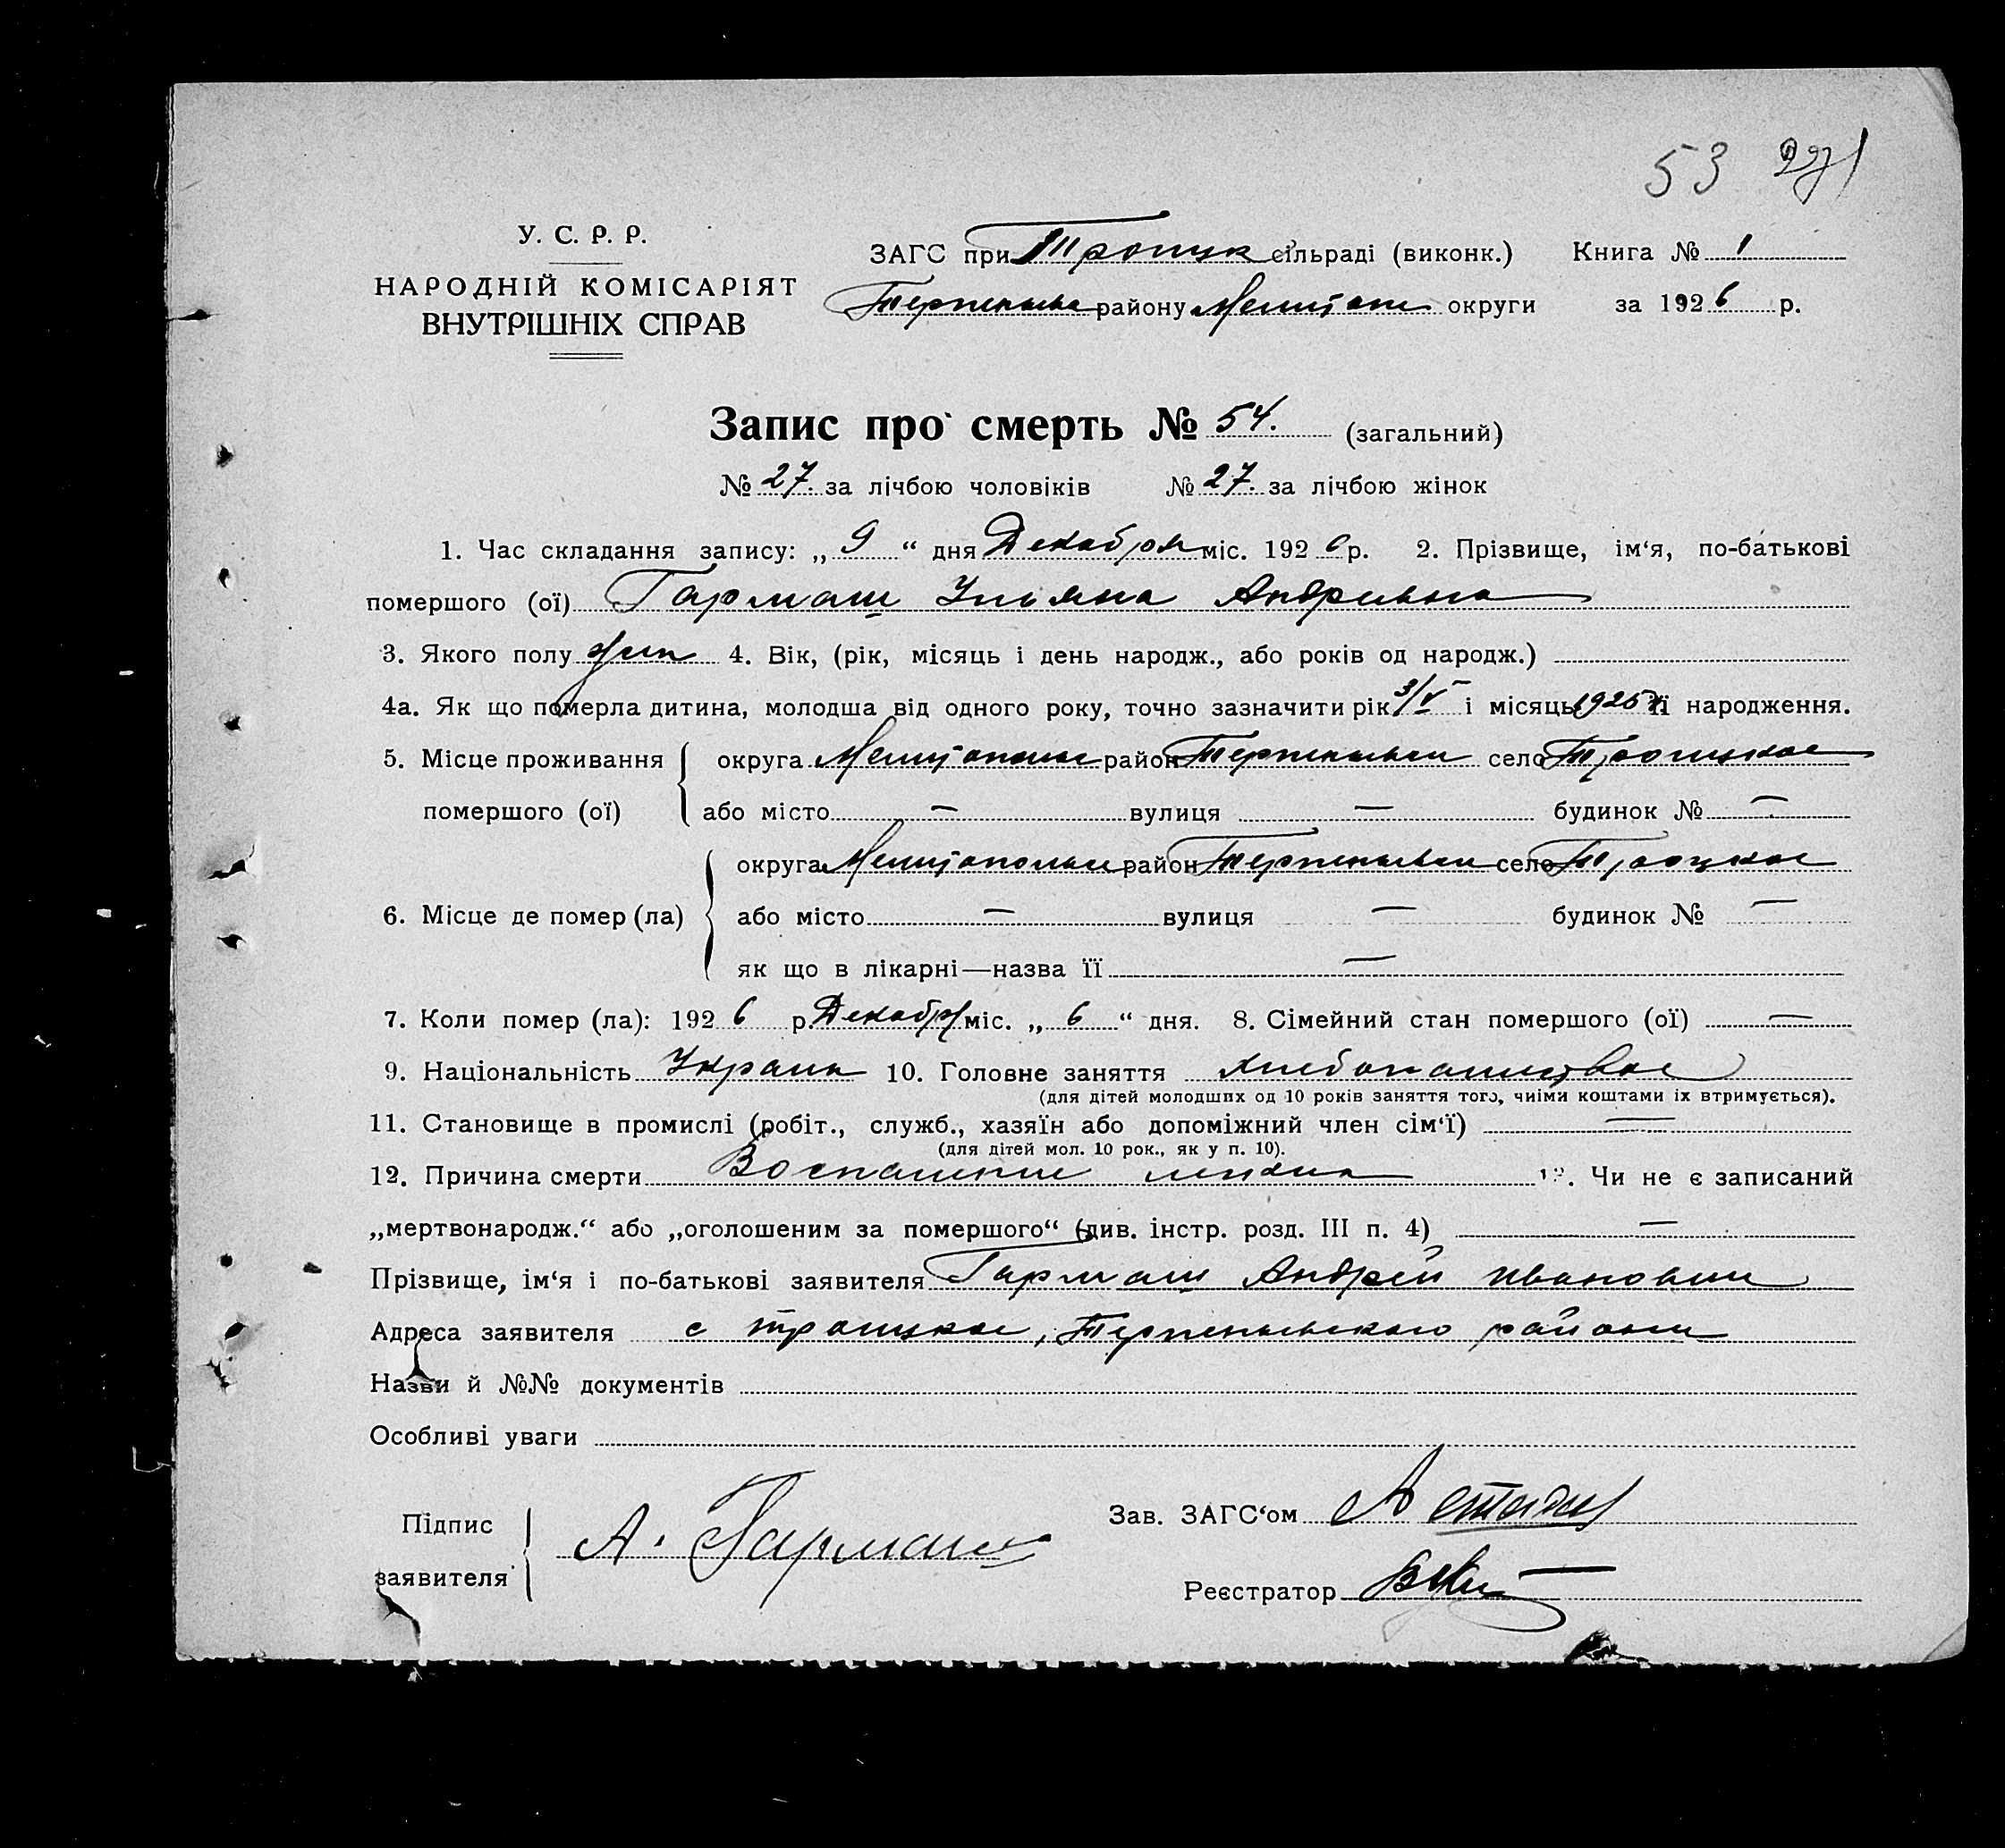 53 271
У. С. Р. Р.
НАРОДНІЙ КОМІСАРІЯТ
ВНУТРІШНІХ СПРАВ
ЗАГС при Троицк сільраді (виконк.) Книга № 1
району Мелитоп округи за 1926 р.
Запис про смерть № 54. (загальний)
№ 27. за лічбою чоловіків № 27. за лічбою жінок
1. Час складання запису: „ 9 “ дня Декабря міс. 1926 р. 2. Прізвище, ім‘я, по-батькові
помершого (ої) Гармаш Ульяна Андреевна
3. Якого полу жен 4. Вік, (рік, місяць і день народж., або років од народж.)
4а. Як що померла дитина, молодша від одного року, точно зазначити рік 3/V і місяць 1925 її народження.
5. Місце проживання округа Мелитополье район село Троицкое
помершого (ої) або місто — вулиця — будинок № —
6. Місце де помер (ла) округа район село Троцкое
або місто — вулиця — будинок № —
як що в лікарні—назва її —
7. Коли помер (ла): 1926 р. Декабря міс. „ 6 “ дня. 8. Сімейний стан помершого (ої) —
9. Національність Украин 10. Головне заняття хлебопашество
(для дітей молодших од 10 років заняття того, чиїми коштами їх втримується).
11. Становище в промислі (робіт., служб., хазяїн або допоміжний член сім‘ї) —
(для дітей мол. 10 рок., як у п. 10).
12. Причина смерти Воспаление легких 13. Чи не є записаний
„мертвонародж.“ або „оголошеним за помершого“ (див. інстр. розд. III п. 4) —
Прізвище, ім‘я і по-батькові заявителя Гармаш Андрей Иванович
Адреса заявителя с Троицкое, Терпеньевского района
Назви й №№ документів
Особливі уваги
Підпис
заявителя А. Гармаш
Зав. ЗАГС‘ом
Реєстратор